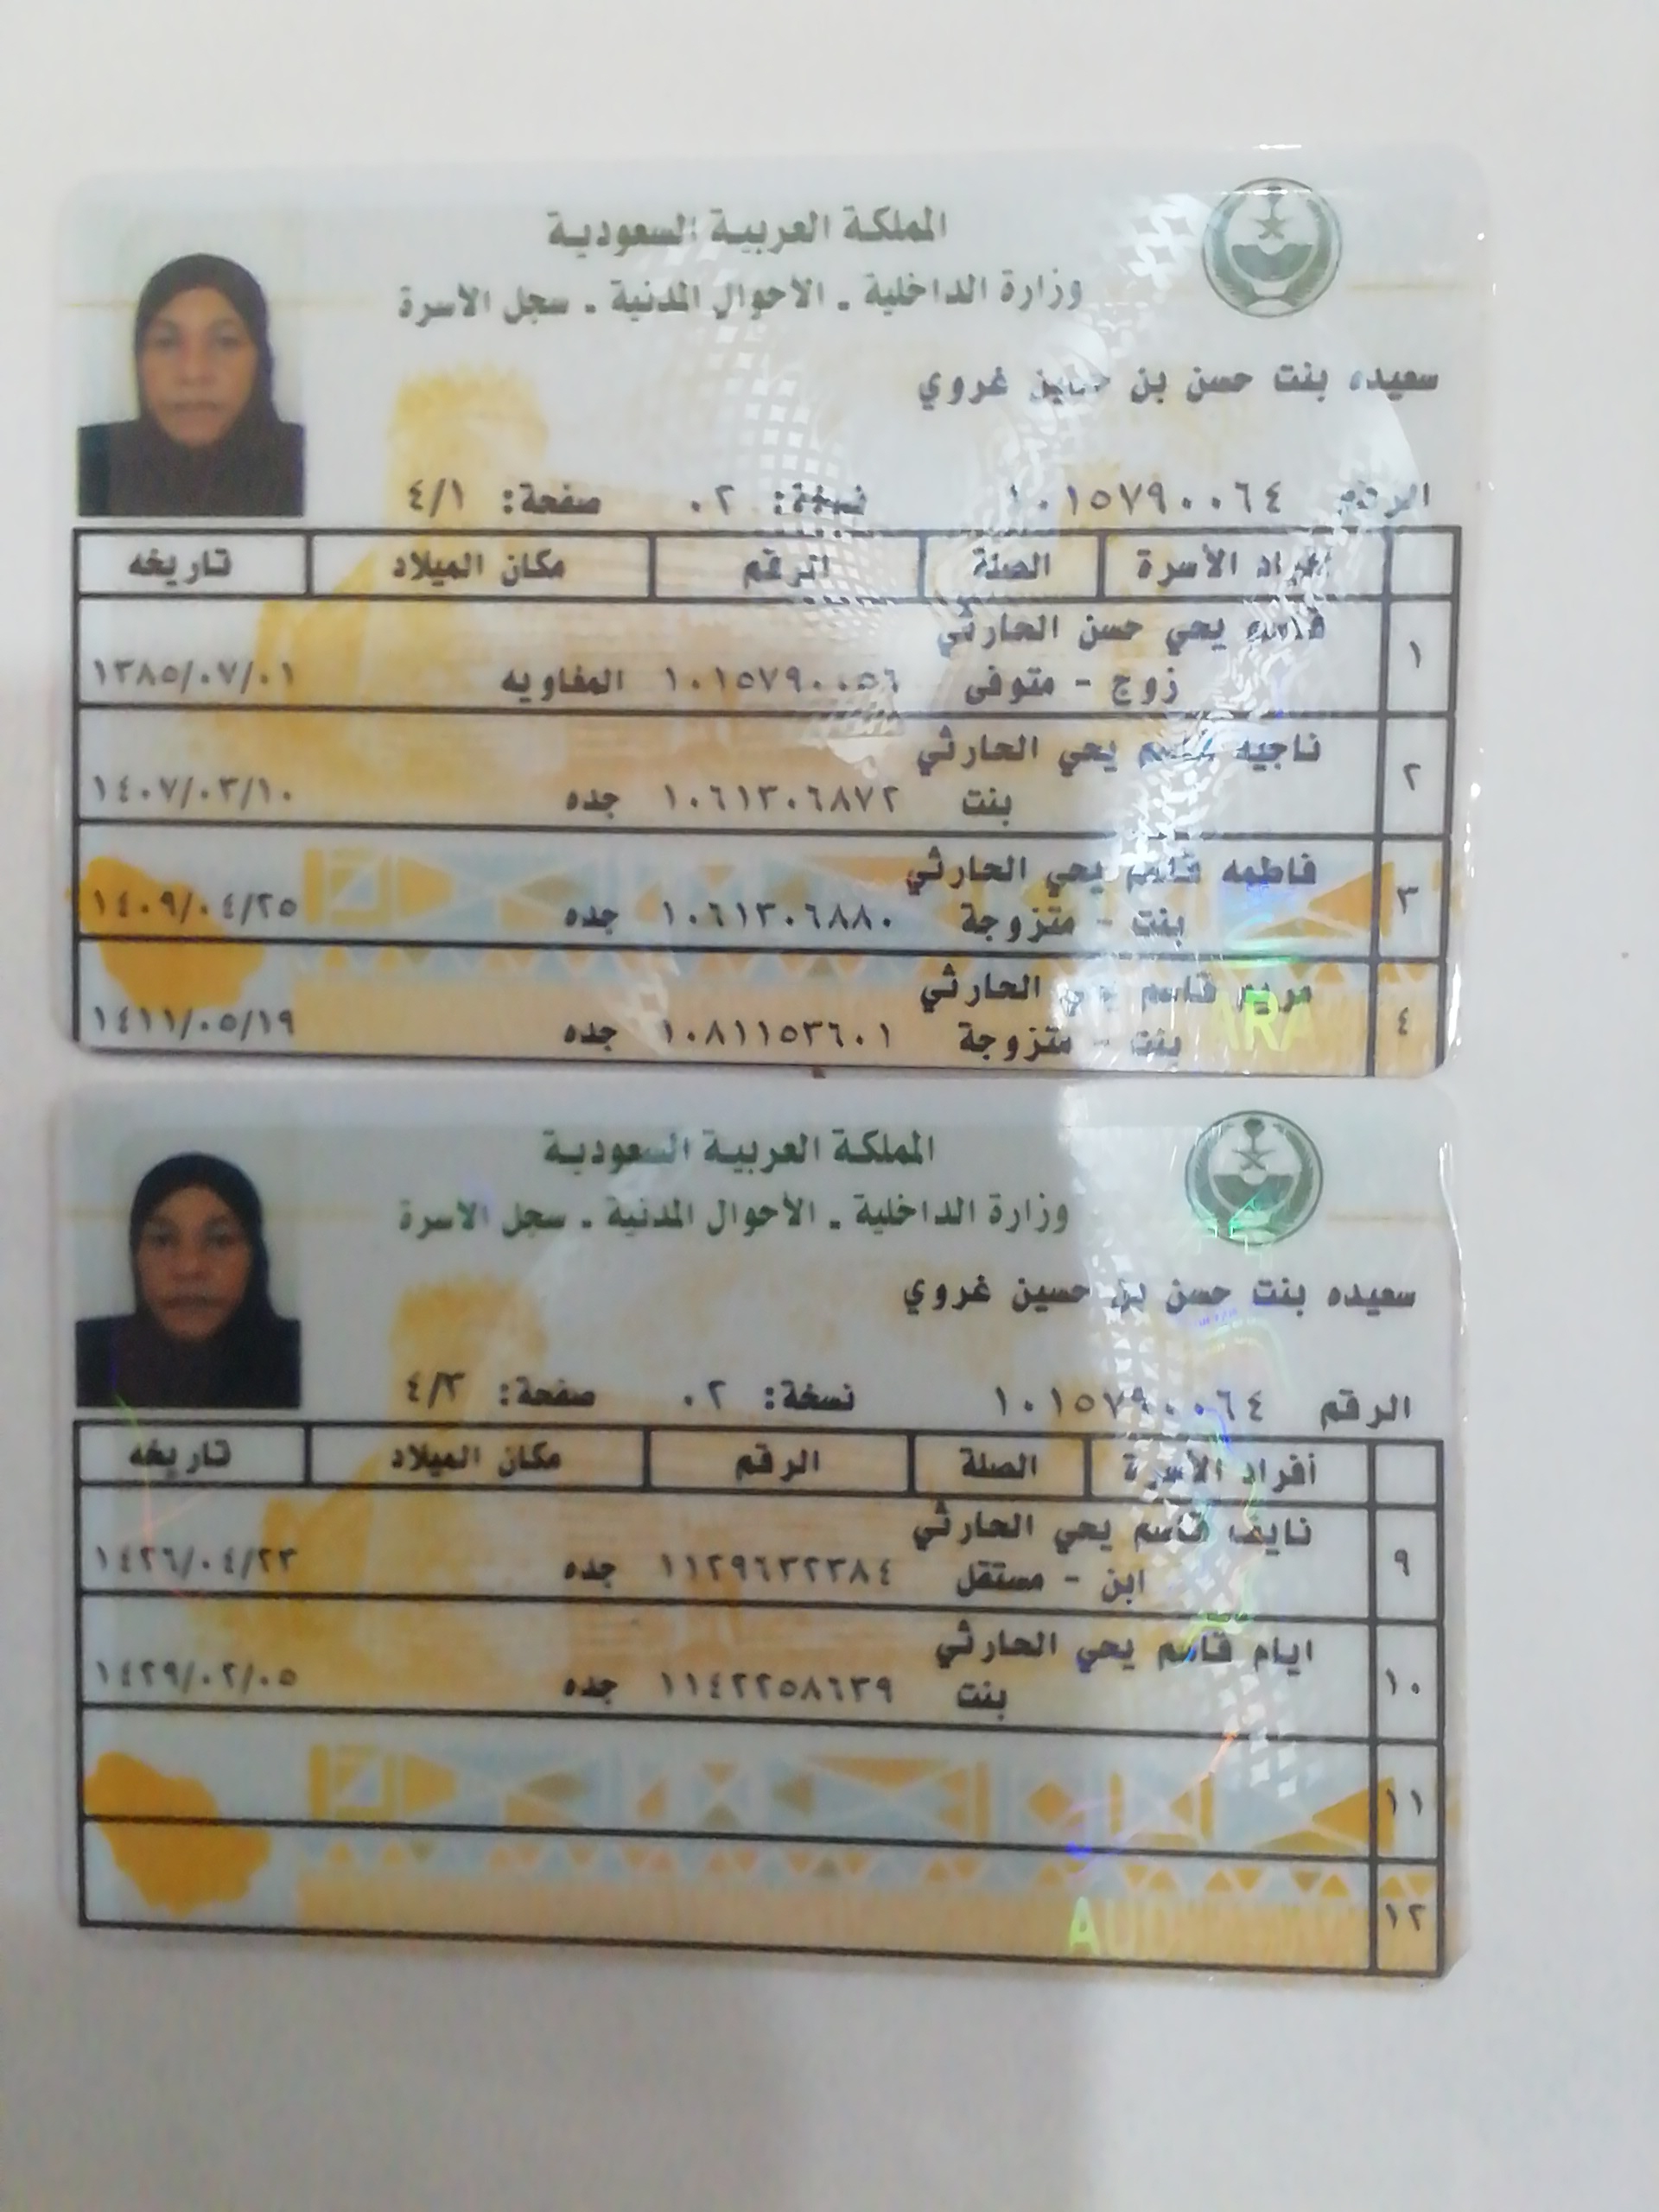 المملكة العربية السعودية
وزارة الداخلية - الأحوال المدنية - سجل الأسرة
سعيده بنت حسن بن حسين غروي
الرقم ١٠١٥٧٩٠٠٦٤ نسخة: ٠٢ صفحة: ٤/١
أفراد الأسرة الصلة الرقم مكان الميلاد تاريخه
١ قاسم يحي حسن الحارثي
زوج - متوفى ١٠١٥٧٩٠٠٥٦ المغاويه ١٣٨٥/٠٧/٠١
٢ ناجيه قاسم يحي الحارثي
بنت ١٠٦١٣٠٦٨٧٢ جده ١٤٠٧/٠٣/١٠
٣ فاطمه قاسم يحي الحارثي
بنت - متزوجة ١٠٦١٣٠٦٨٨٠ جده ١٤٠٩/٠٤/٢٥
٤ مريم قاسم يحي الحارثي
بنت - متزوجة ١٠٨١١٥٣٦٠١ جده ١٤١١/٠٥/١٩
المملكة العربية السعودية
وزارة الداخلية - الأحوال المدنية - سجل الأسرة
سعيده بنت حسن بن حسين غروي
الرقم ١٠١٥٧٩٠٠٦٤ نسخة: ٠٢ صفحة: ٤/٣
أفراد الأسرة الصلة الرقم مكان الميلاد تاريخه
٩ نايف قاسم يحي الحارثي
ابن - مستقل ١١٢٩٦٣٢٣٨٤ جده ١٤٢٦/٠٤/٢٣
١٠ ايام قاسم يحي الحارثي
بنت ١١٤٢٢٥٨٦٣٩ جده ١٤٢٩/٠٢/٠٥
١١
١٢